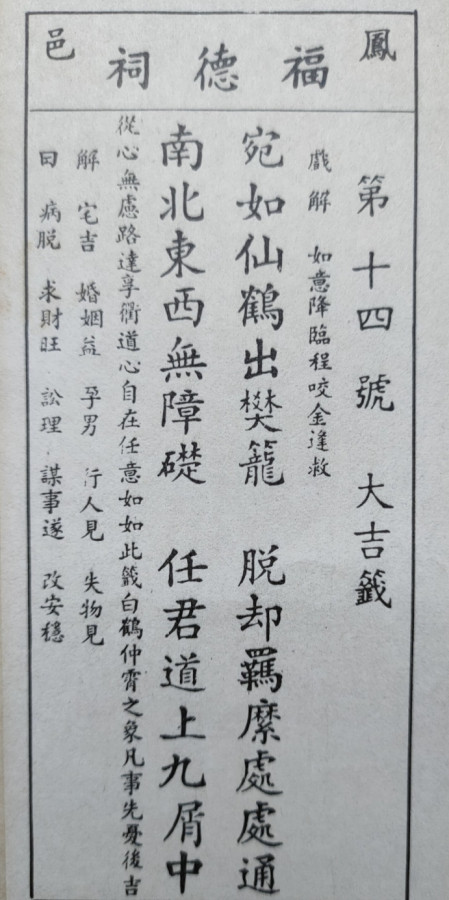 鳳邑
福德祠
第十四號 大吉籤
戲解 如意降臨程咬金逢救
宛如仙鶴出樊籠 脫却羈縻處處通
南北東西無障礙 任君道上九屑中
從心無慮路達享衢道心自在任意如如此籤白鶴仲霄之象凡事先憂後吉
解 宅吉 婚姻益 孕男 行人見 失物見
曰 病脫 求財旺 訟理 謀事遂 改安穩